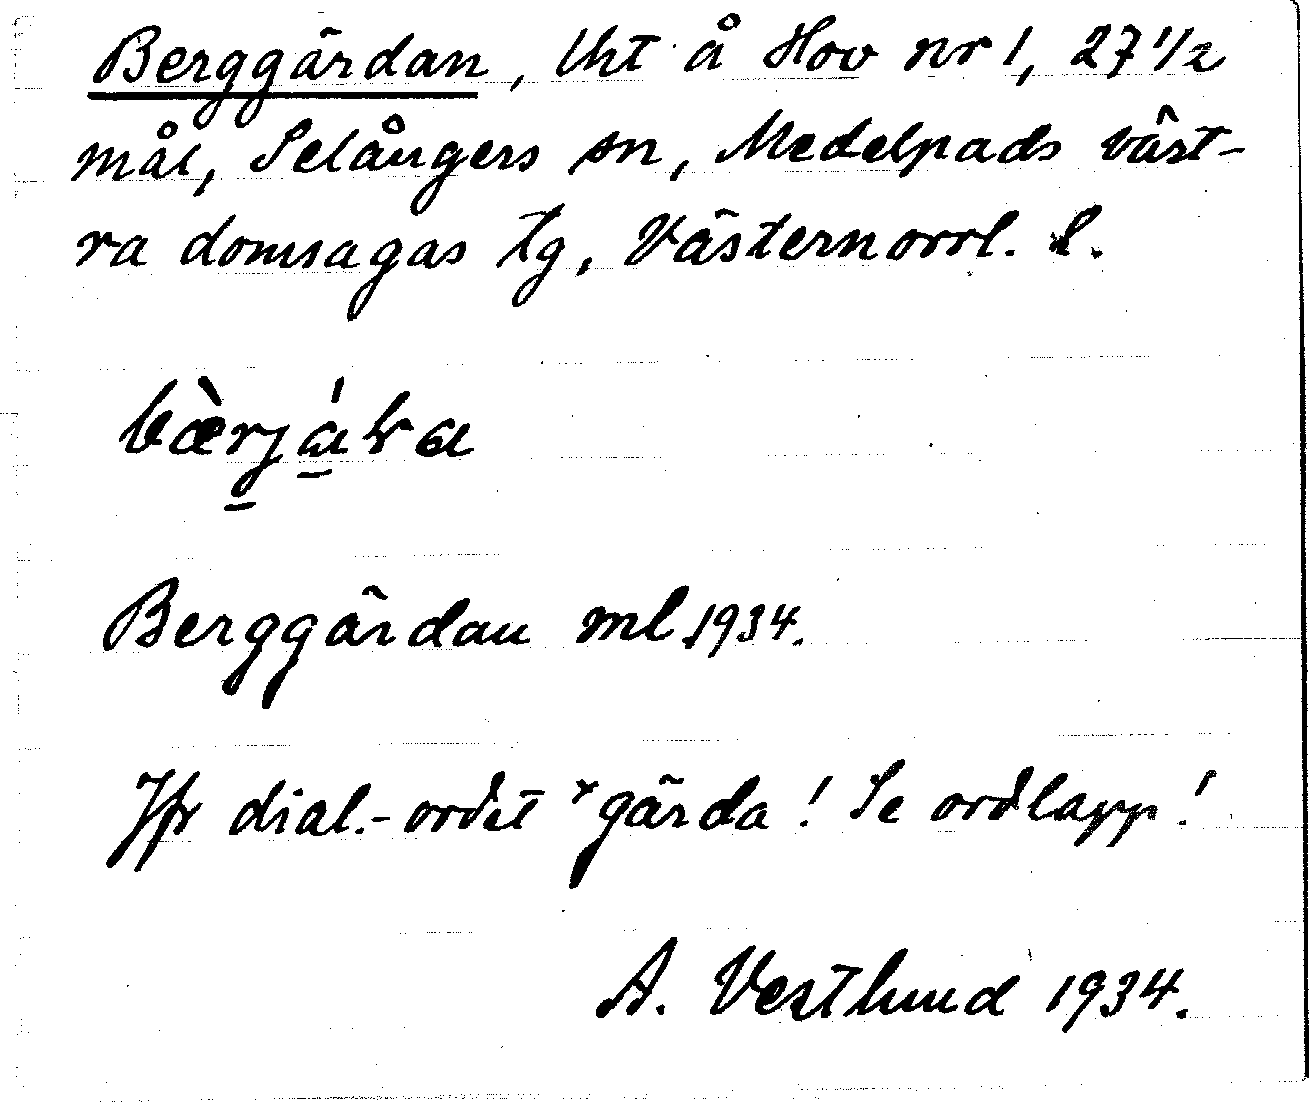 Berggärdan, Uht å Hov nr 1, 27 1/2
mål, Selångers sn, Medelpads väst-
ra domsagas tg, Västernorrl. l.
Berggärdan ml 1934.
Jfr dial.-ordet *gärda! Se ordlapp!
A. Vestlund 1934.